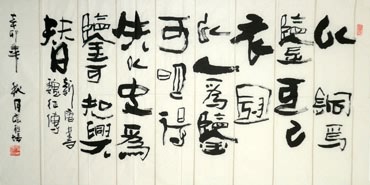 以銅為
鑒可正
衣冠
以人為鑒
可明得
失以史為
鑒可知興
替
新唐書
魏征傳
辛卯年秋月